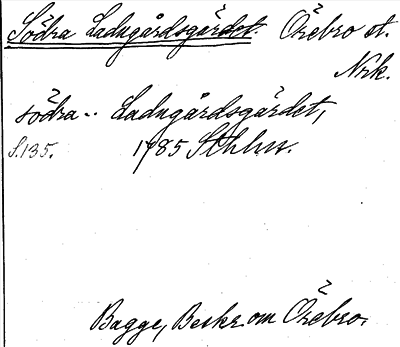 Södra Ladugårdsgärdet. Örebro st.
Nrk.
södra.. Ladugårdsgärdet,
S. 135. 1785 Sthlm.
Bagge, Beskr. om Örebro.